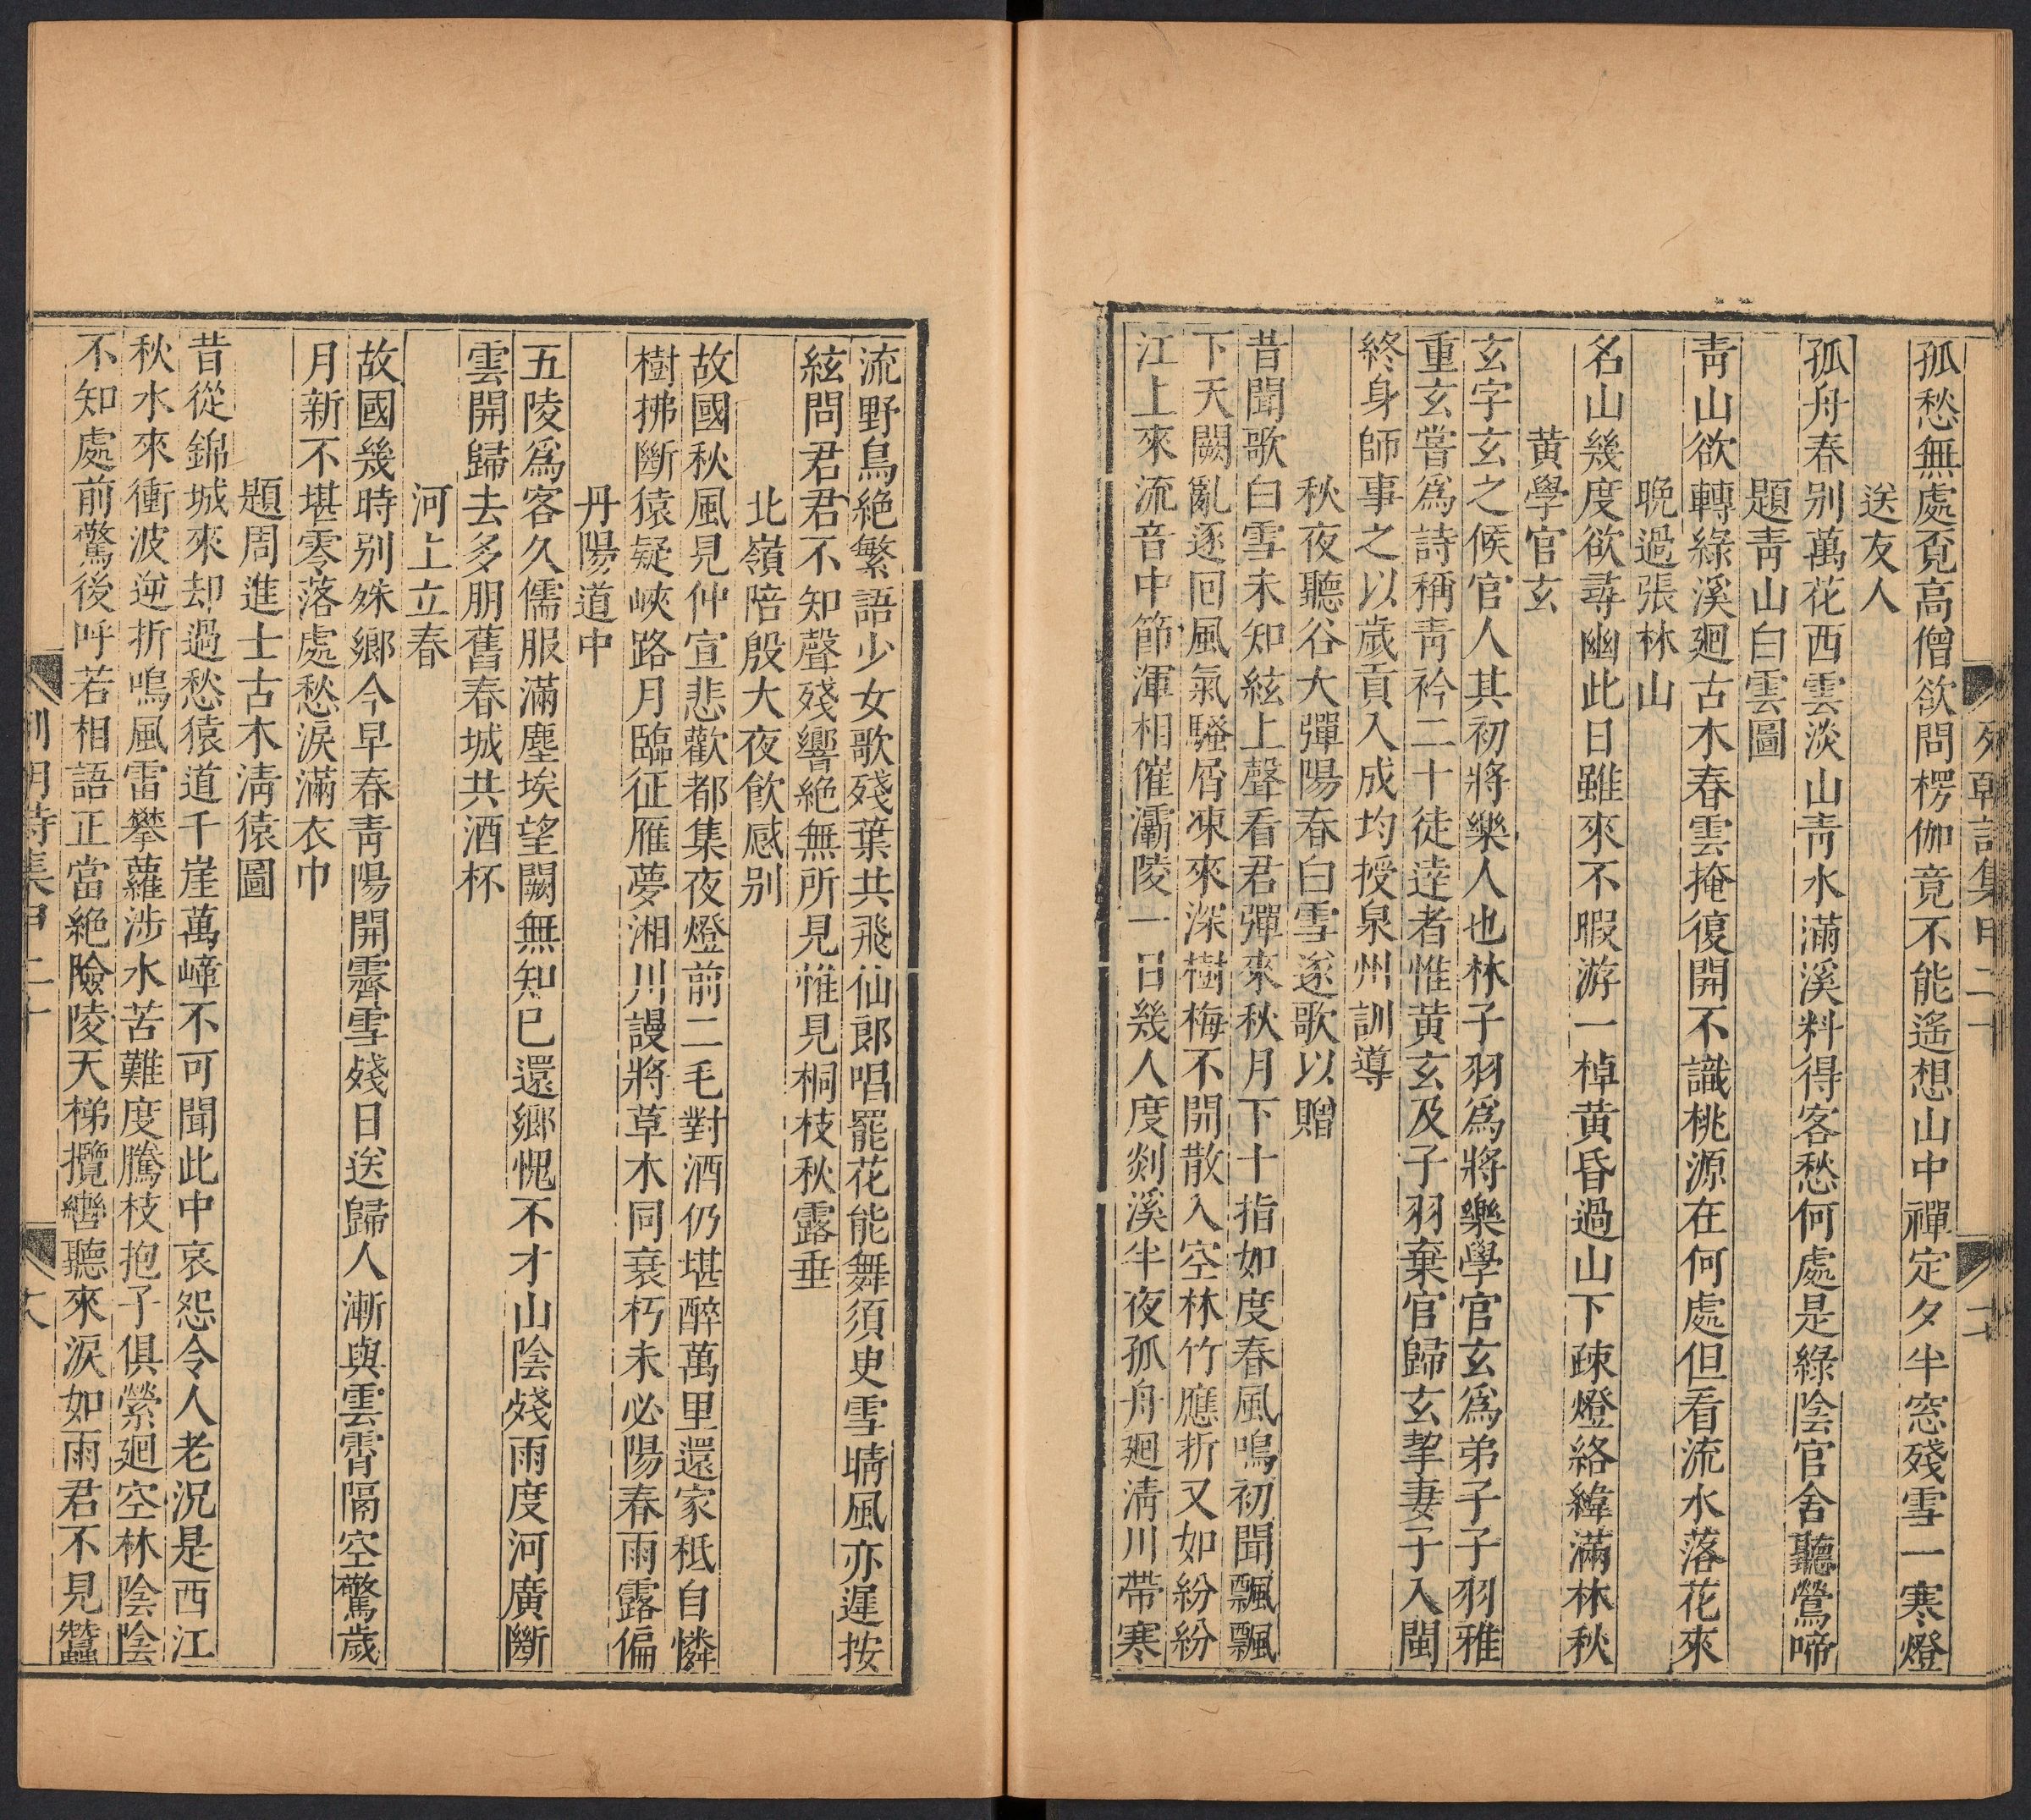 列朝詩集甲二十
孤愁無處覔高僧欲問楞伽竟不能遙想山中禪定夕半窓殘雪一寒燈
送友人
孤舟春别萬花西雲淡山靑水滿溪料得客愁何處是綠陰官舍聽鶯啼
題靑山白雲圖
靑山欲轉綠溪廻古木春雲掩復開不識桃源在何處但看流水落花來
晚過張林山
名山幾度欲尋幽此日雖來不暇游一棹黄昏過山下疎燈絡緯滿林秋
黄學官玄
玄字玄之候官人其初將樂人也林子羽爲將樂學官玄爲弟子子羽雅
重玄嘗爲詩稱靑衿二十徒逹者惟黄玄及子羽棄官歸玄挈妻子入閩
終身師事之以歲貢入成均授泉州訓導
秋夜聽谷大彈陽春白雪遂歌以贈
昔聞歌白雪未知絃上聲看君彈來秋月下十指如度春風鳴初聞飄飄
下天闕亂逐回風氣騷屑凍來深樹梅不開散入空林竹應折又如紛紛
江上來流音中節渾相催灞陵一日幾人度剡溪半夜孤舟廻淸川帶寒
流野鳥絶繁語少女歌殘葉共飛仙郎唱罷花能舞須史雪晴風亦遲按
絃問君君不知聲殘響絶無所見惟見桐枝秋露垂
北嶺陪殷大夜飮感别
故國秋風見仲宣悲歡都集夜燈前二毛對酒仍堪醉萬里還家秪自憐
樹拂斷猿疑峽路月臨征雁夢湘川謾將草木同衰朽未必陽春雨露偏
丹陽道中
五陵爲客久儒服滿塵埃望闕無知巳還鄉愧不才山陰殘雨度河廣斷
雲開歸去多朋舊春城共酒杯
河上立春
故國幾時别殊鄉今早春靑陽開霽雪殘日送歸人漸與雲霄隔空驚歲
月新不堪零落處愁淚滿衣巾
題周進士古木淸猿圖
昔從錦城來却過愁猿道千崖萬嶂不可聞此中哀怨令人老況是西江
秋水來衝波逆折鳴風雷攀蘿涉水苦難度騰枝抱子俱縈廻空林陰陰
不知處前驚後呼若相語正當絶險陵天梯攬轡聽來淚如雨君不見蠶